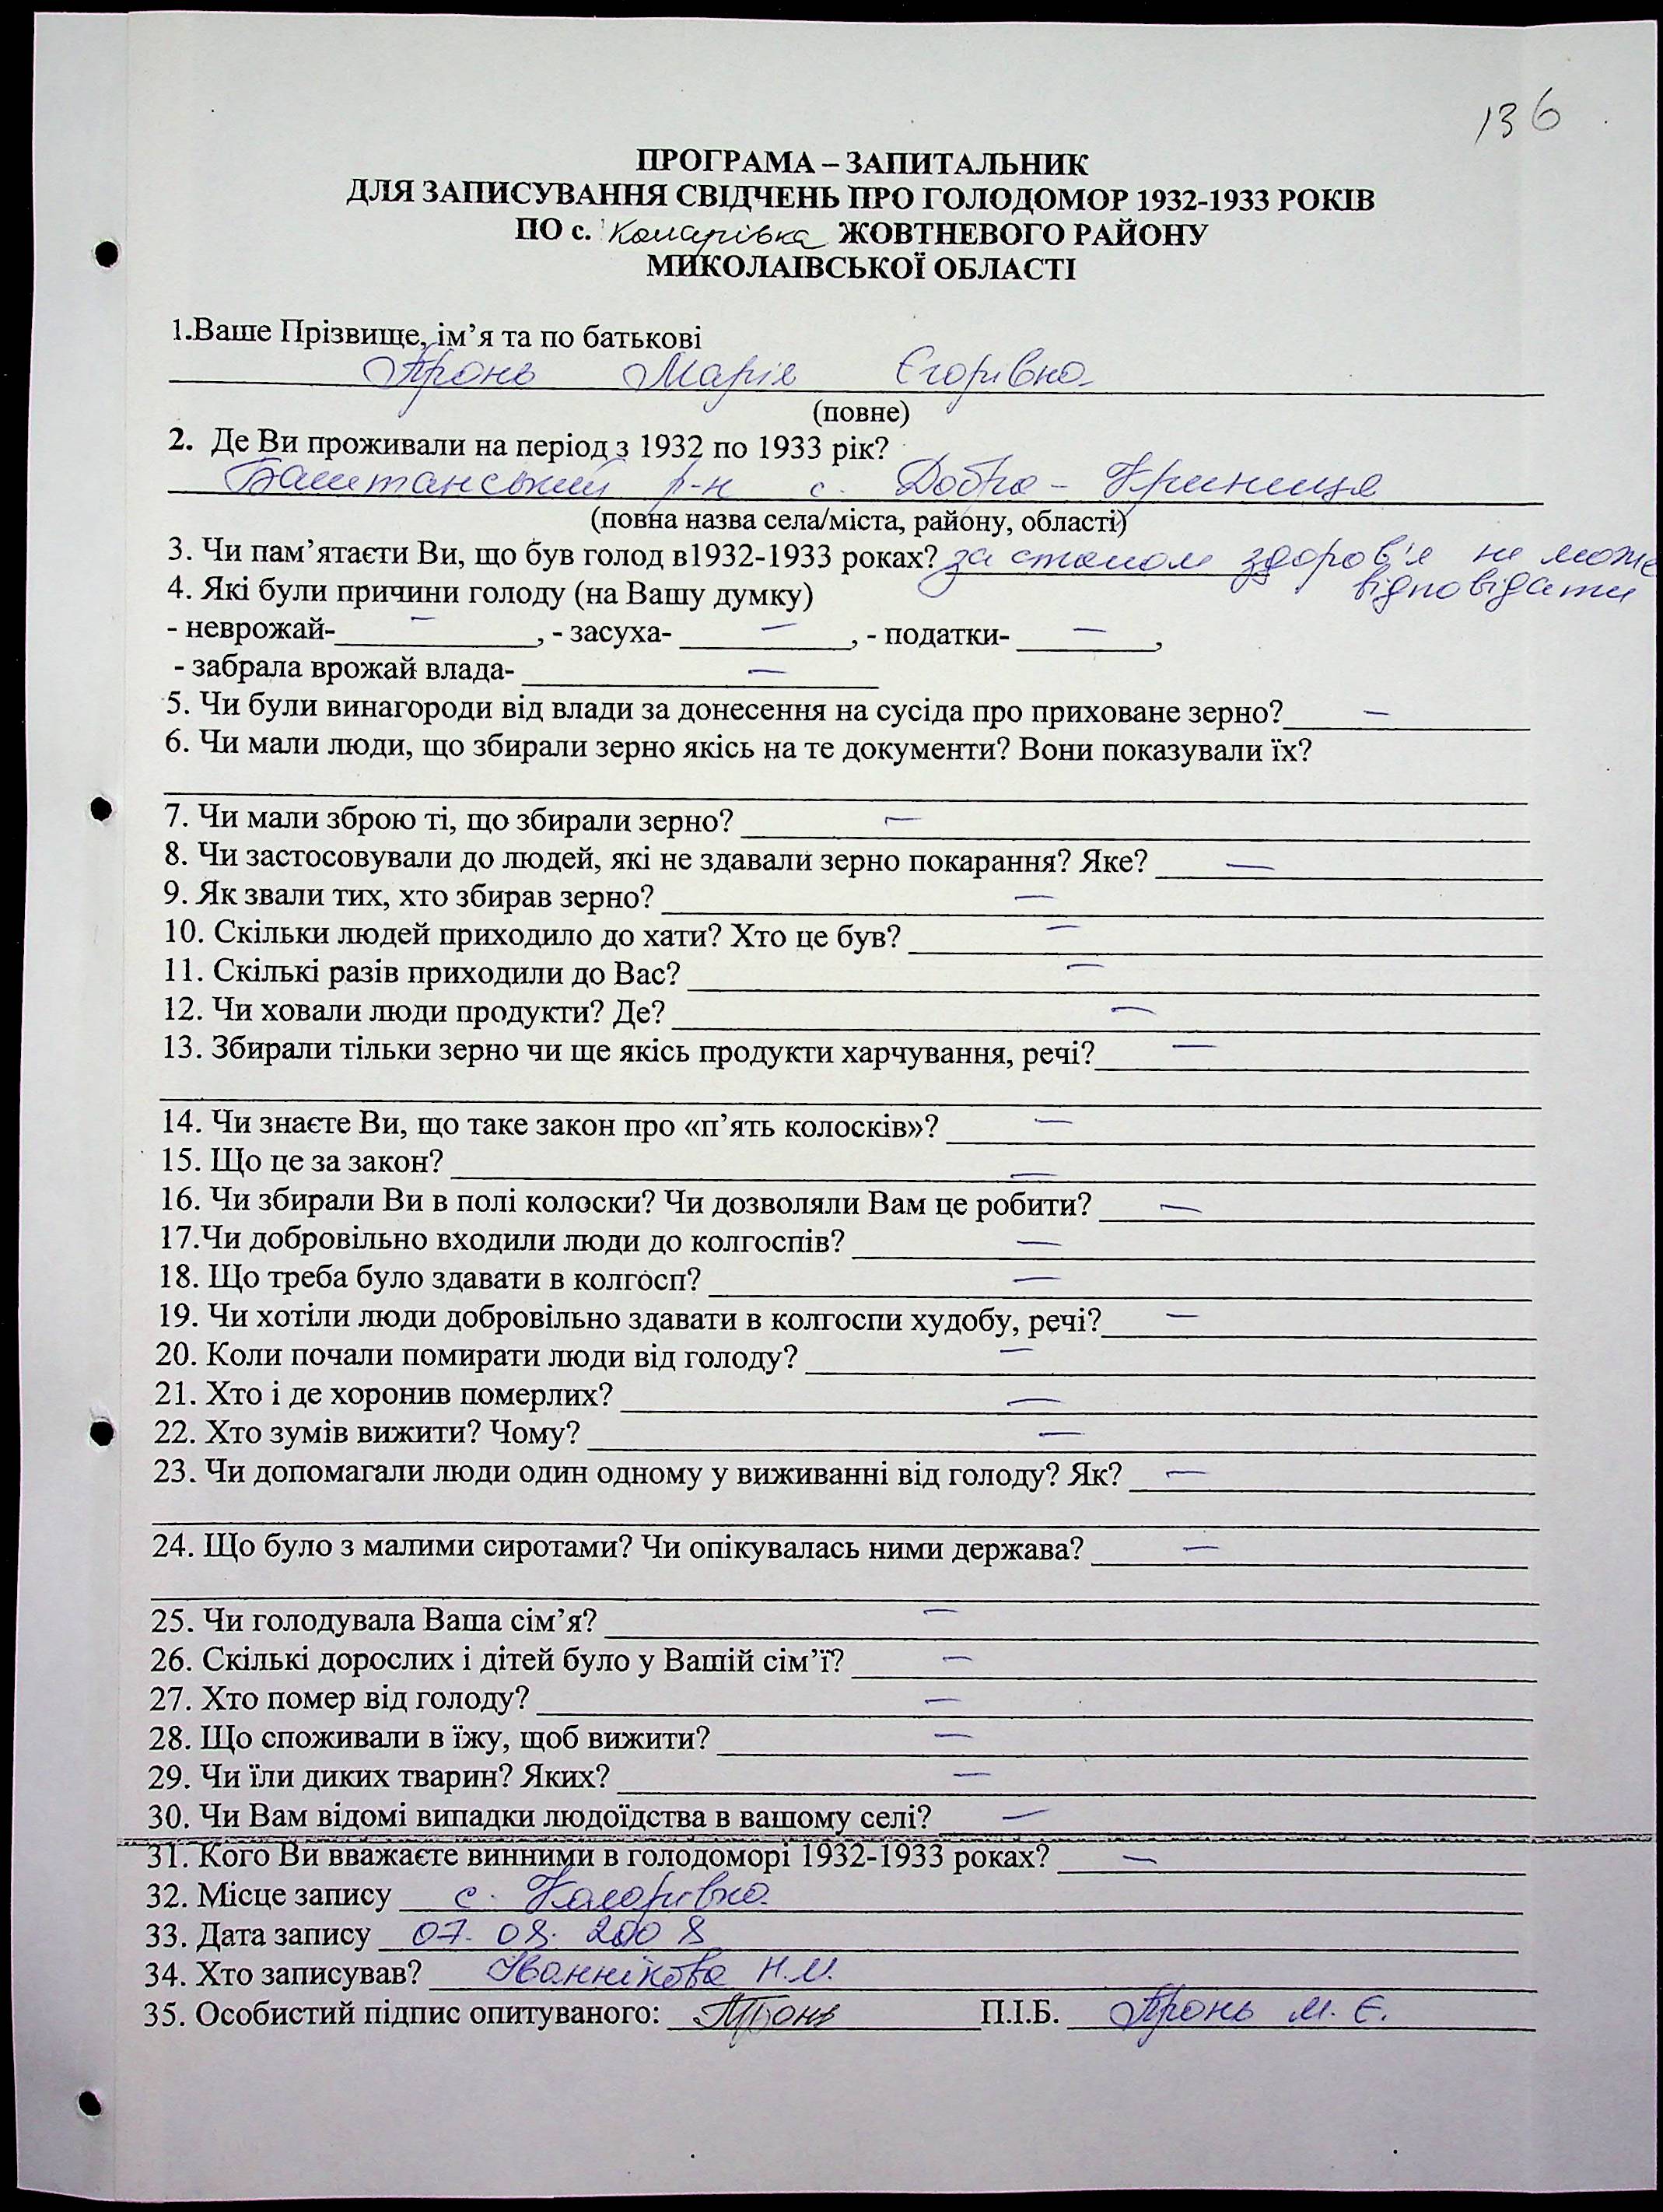 136
ПРОГРАМА – ЗАПИТАЛЬНИК
ДЛЯ ЗАПИСУВАННЯ СВІДЧЕНЬ ПРО ГОЛОДОМОР 1932-1933 РОКІВ
ПО с. Комарівка ЖОВТНЕВОГО РАЙОНУ
МИКОЛАЇВСЬКОЇ ОБЛАСТІ
1.Ваше Прізвище, ім’я та по батькові
Пронь Марія Єгорівна
(повне)
2. Де Ви проживали на період з 1932 по 1933 рік?
Баштанський р-н с. Добра - Криниця
(повна назва села/міста, району, області)
3. Чи пам’ятаєти Ви, що був голод в1932-1933 роках? за станом здоров'я не може
відповідати
4. Які були причини голоду (на Вашу думку)
- неврожай- —, - засуха- —, - податки- —,
- забрала врожай влада- —
5. Чи були винагороди від влади за донесення на сусіда про приховане зерно? —
6. Чи мали люди, що збирали зерно якісь на те документи? Вони показували їх?
7. Чи мали зброю ті, що збирали зерно? —
8. Чи застосовували до людей, які не здавали зерно покарання? Яке? —
9. Як звали тих, хто збирав зерно? —
10. Скільки людей приходило до хати? Хто це був? —
11. Скількі разів приходили до Вас? —
12. Чи ховали люди продукти? Де? —
13. Збирали тільки зерно чи ще якісь продукти харчування, речі? —
14. Чи знаєте Ви, що таке закон про «п’ять колосків»? —
15. Що це за закон? —
16. Чи збирали Ви в полі колоски? Чи дозволяли Вам це робити? —
17.Чи добровільно входили люди до колгоспів? —
18. Що треба було здавати в колгосп? —
19. Чи хотіли люди добровільно здавати в колгоспи худобу, речі? —
20. Коли почали помирати люди від голоду? —
21. Хто і де хоронив померлих? —
22. Хто зумів вижити? Чому? —
23. Чи допомагали люди один одному у виживанні від голоду? Як? —
24. Що було з малими сиротами? Чи опікувалась ними держава? —
25. Чи голодувала Ваша сім’я? —
26. Скількі дорослих і дітей було у Вашій сім’ї? —
27. Хто помер від голоду? —
28. Що споживали в їжу, щоб вижити? —
29. Чи їли диких тварин? Яких? —
30. Чи Вам відомі випадки людоїдства в вашому селі? —
31. Кого Ви вважаєте винними в голодоморі 1932-1933 роках? —
32. Місце запису с. Комарівка
33. Дата запису 07. 08. 2008
34. Хто записував? Іваннікова Н.М.
35. Особистий підпис опитуваного: Пронь П.І.Б. Пронь М. Є.